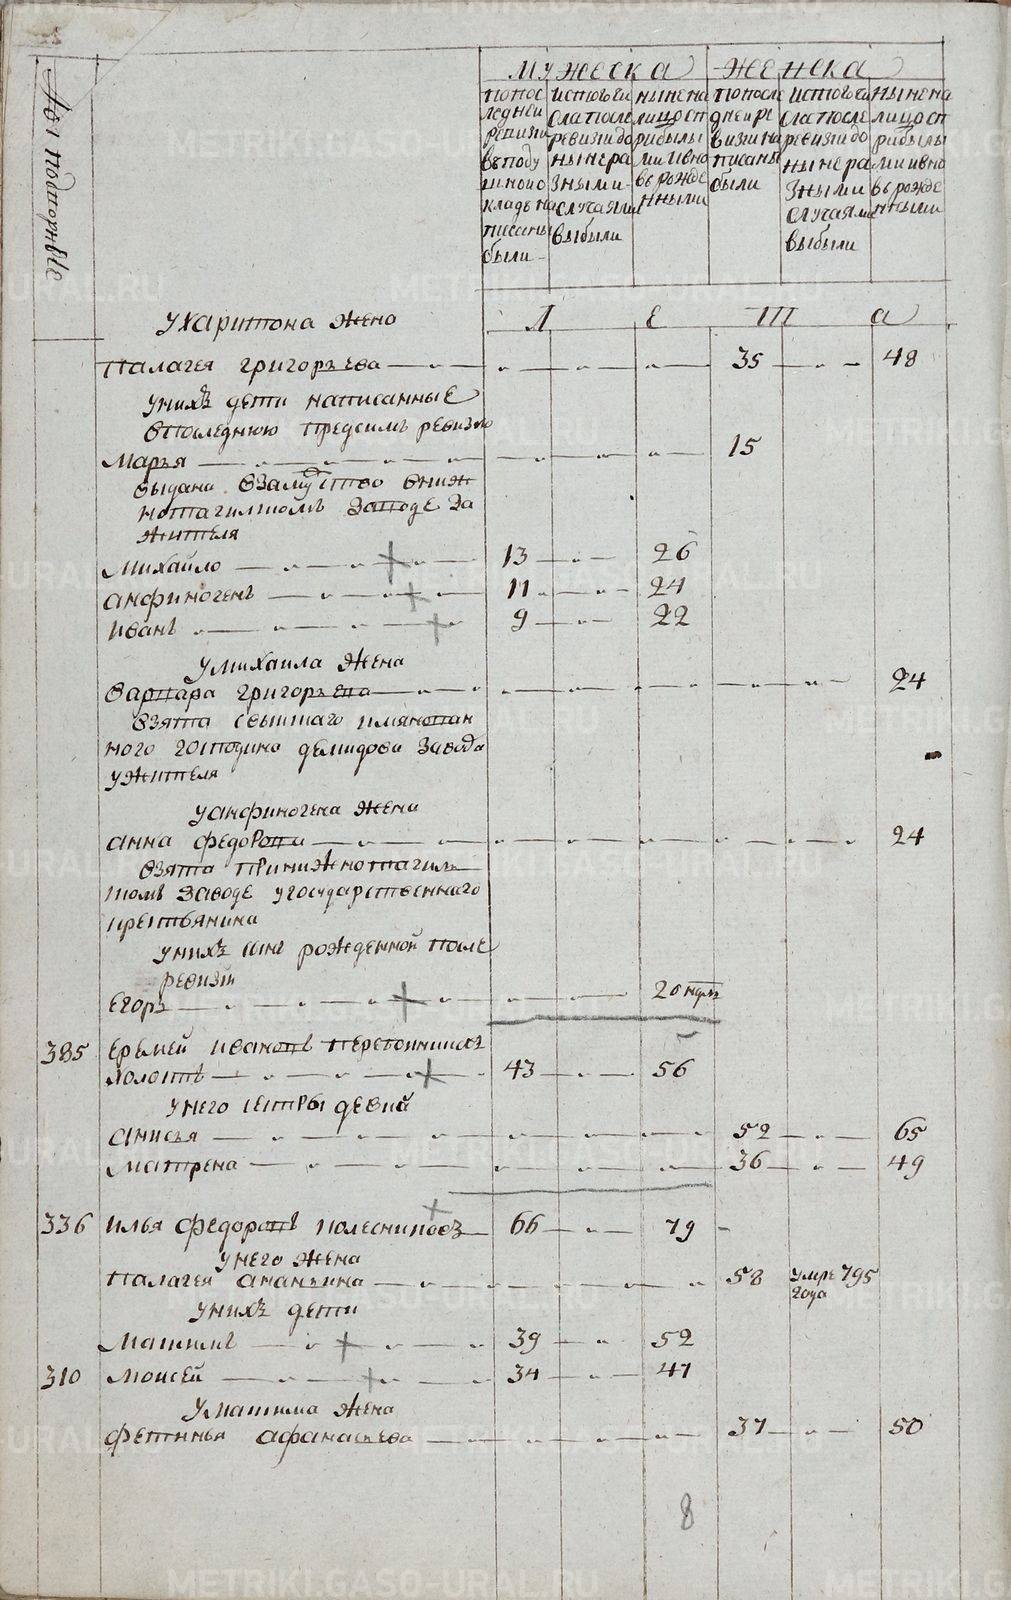 мужеска
женска
по последней ревизии в подушном окладе написаны были
ис того числа после ревизии до ныне разными случаями выбыли
ныне на лицо с прибылыми и вновь рожденными
по последней ревизии написаны были
ис того числа после ревизии до ныне разными случаями выбыли
ныне на лицо с прибылыми и вновь рожденными
Л е т а
ухаритона жена
палагея григорьева 35 48
унихъ дети написанные
впоследнюю предсимъ ревизию
Марья 15
выдана взамуство вниж
нотагилском заводе за
жителя
Михайло 13 26
анфиногенъ 11 24
Иванъ 9 22
умихаила жена
варвара григорьева 24
взята свышшаго имянован
ного господина демидова завода
ужителя
уанфиногена жена
анна федорова 24
взята принижнотагил
скомъ заводе угосударственнаго
крестьянина
унихъ сынъ рожденной после
ревизи
Егоръ 20 нед
385 Еремей Ивановъ
холостъ 43 56
унего сестры девки
анисья 52 65
Матрена 36 49
336 Илья федоровъ колесниковъ 66 79
унего жена
палагея ананьина 58 умре 795
года
унихъ дети
Максимъ 39 52
310 Моисей 34 47
умаксима жена
фетинья афанасьева 37 50
8
METRIKI.GASO-URAL.RU